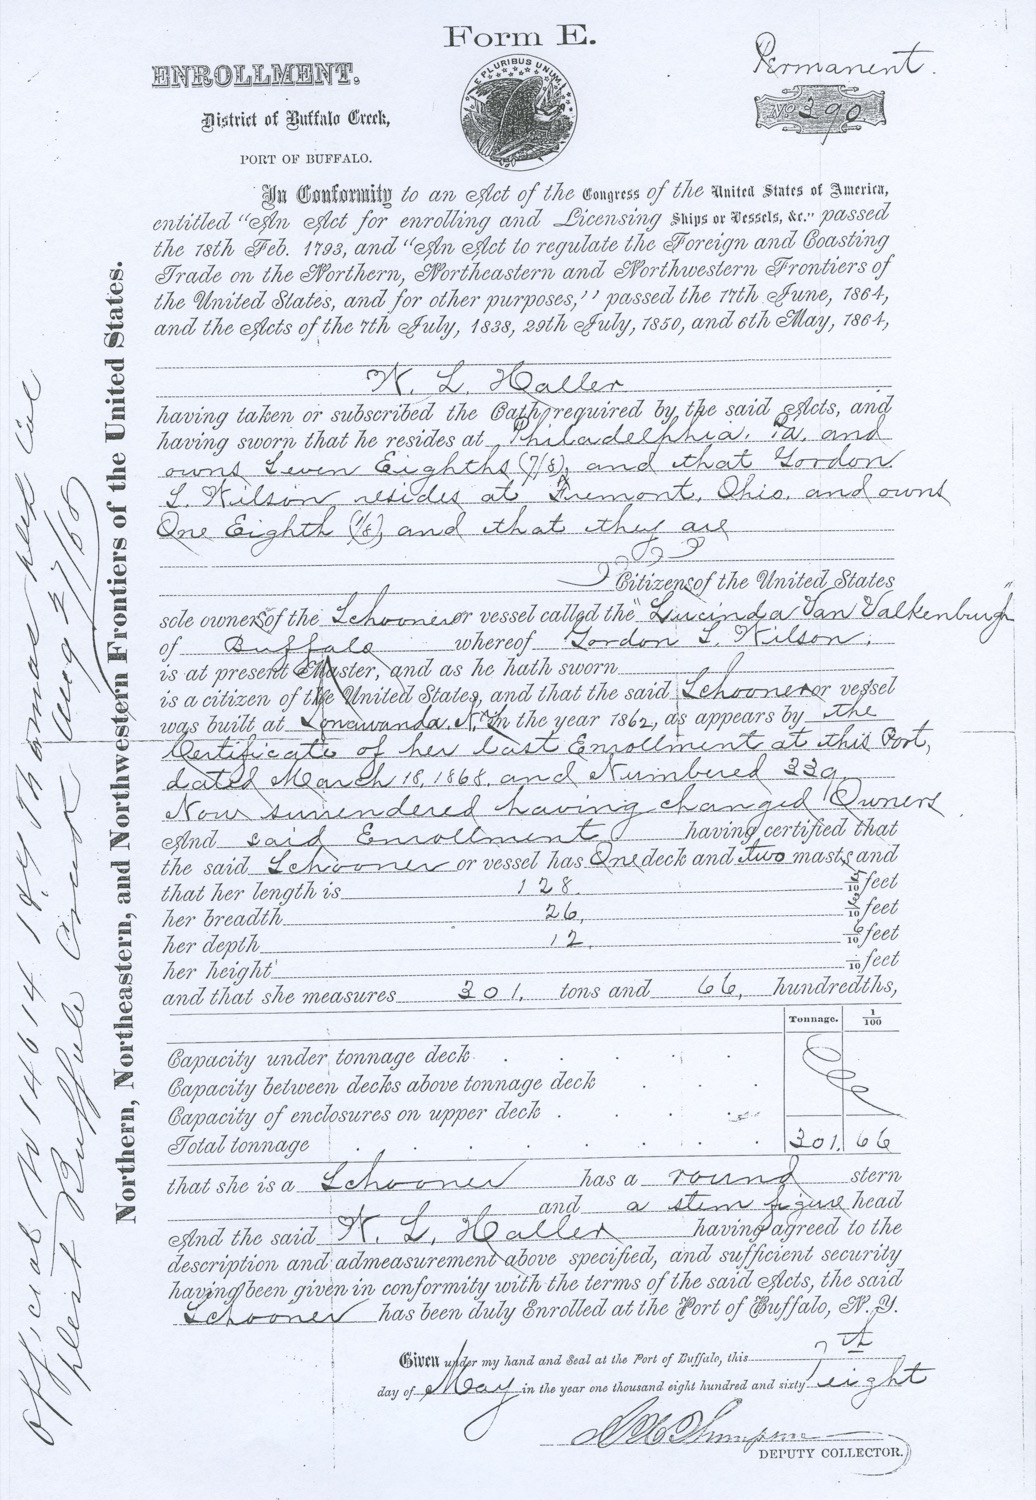 Form E.
ENROLLMENT.
Permanent.
E PLURIBUS UNUM
No 390
District of Buffalo Creek,
PORT OF BUFFALO.
In Conformity to an Act of the Congress of the United States of America,
entitled "An Act for enrolling and Licensing Ships or Vessels, &c." passed
the 18th Feb. 1793, and "An Act to regulate the Foreign and Coasting
Trade on the Northern, Northeastern and Northwestern Frontiers of
the United States, and for other purposes," passed the 17th June, 1864,
and the Acts of the 7th July, 1838, 29th July, 1850, and 6th May, 1864,
W. L. Haller
having taken or subscribed the Oath required by the said Acts, and
having sworn that he resides at Philadelphia, Pa. and
owns Seven Eighths (7/8), and that Gordon
L. Wilson resides at Fremont, Ohio, and owns
One Eighth (1/8) and that they are
Citizens of the United States
sole owners of the Schooner or vessel called the "Lucinda Van Valkenburgh"
of Buffalo whereof Gordon L. Wilson,
is at present Master, and as he hath sworn
is a citizen of the United States, and that the said Schooner or vessel
was built at Tonawanda N.Y. in the year 1862, as appears by the
Certificate of her last Enrollment at this Port,
dated March 18, 1868, and Numbered 339
Now surrendered having changed Owners
And said Enrollment having certified that
the said Schooner or vessel has One deck and two masts and
that her length is 128. /10 feet
her breadth 26, /10 feet
her depth 12. /10 feet
her height /10 feet
and that she measures 301, tons and 66, hundredths,
Tonnage. 1/100
Capacity under tonnage deck
Capacity between decks above tonnage deck
Capacity of enclosures on upper deck
Total tonnage 301. 66
that she is a Schooner has a round stern
and a stem figure head
And the said W. L. Haller having agreed to the
description and admeasurement above specified, and sufficient security
having been given in conformity with the terms of the said Acts, the said
Schooner has been duly Enrolled at the Port of Buffalo, N. Y.
Given under my hand and Seal at the Port of Buffalo, this 7th
day of May in the year one thousand eight hundred and sixty eight
Thompson
DEPUTY COLLECTOR.
Northern, Northeastern, and Northwestern Frontiers of the United States.
Official No 14614 Thomas
Buffalo Creek Aug 27/68